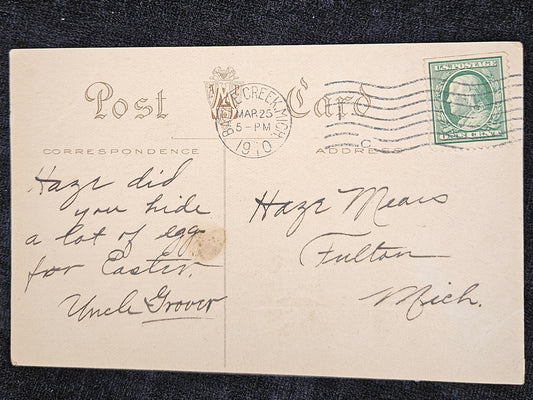 Post Card
BATTLE CREEK, MICH.
MAR 25
5-PM
1910
U.S. POSTAGE
ONE CENT
CORRESPONDENCE
ADDRESS
Haze did
you hide
a lot of eggs
for Easter.
Uncle Grover
Haze Mears
Fulton
Mich.